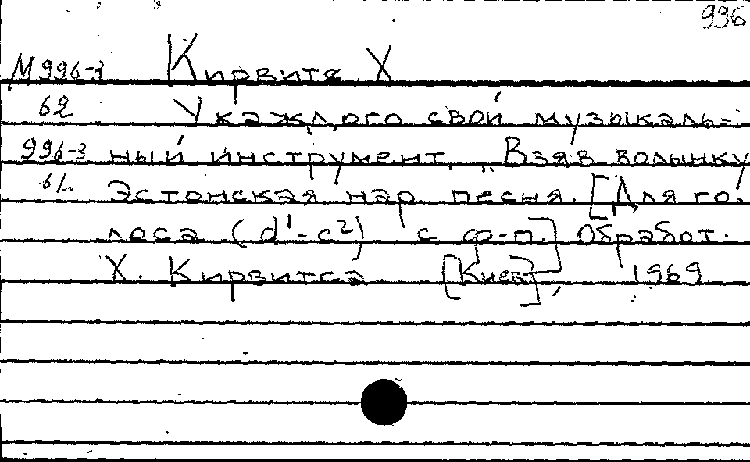 996
М 996-3 Кирвите Х
62 У каждого свой музыкаль=
996-3 ный инструмент. „Взяв волынку
61 Эстонская нар. песня. [Для го=
лоса (d¹-c²) с ф-п.] Обработ.
Х. Кирвитса [Киев], 1969